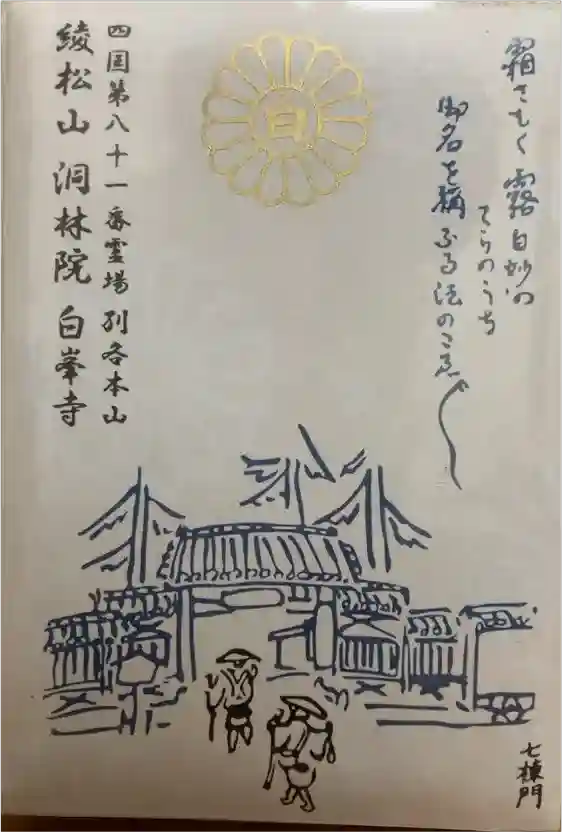 霜さむく 露白妙の
てらのうち
御名を稱ふる法のこゑ〲
白
四国第八十一番霊場 別各本山
綾松山 洞林院 白峯寺
七棟門